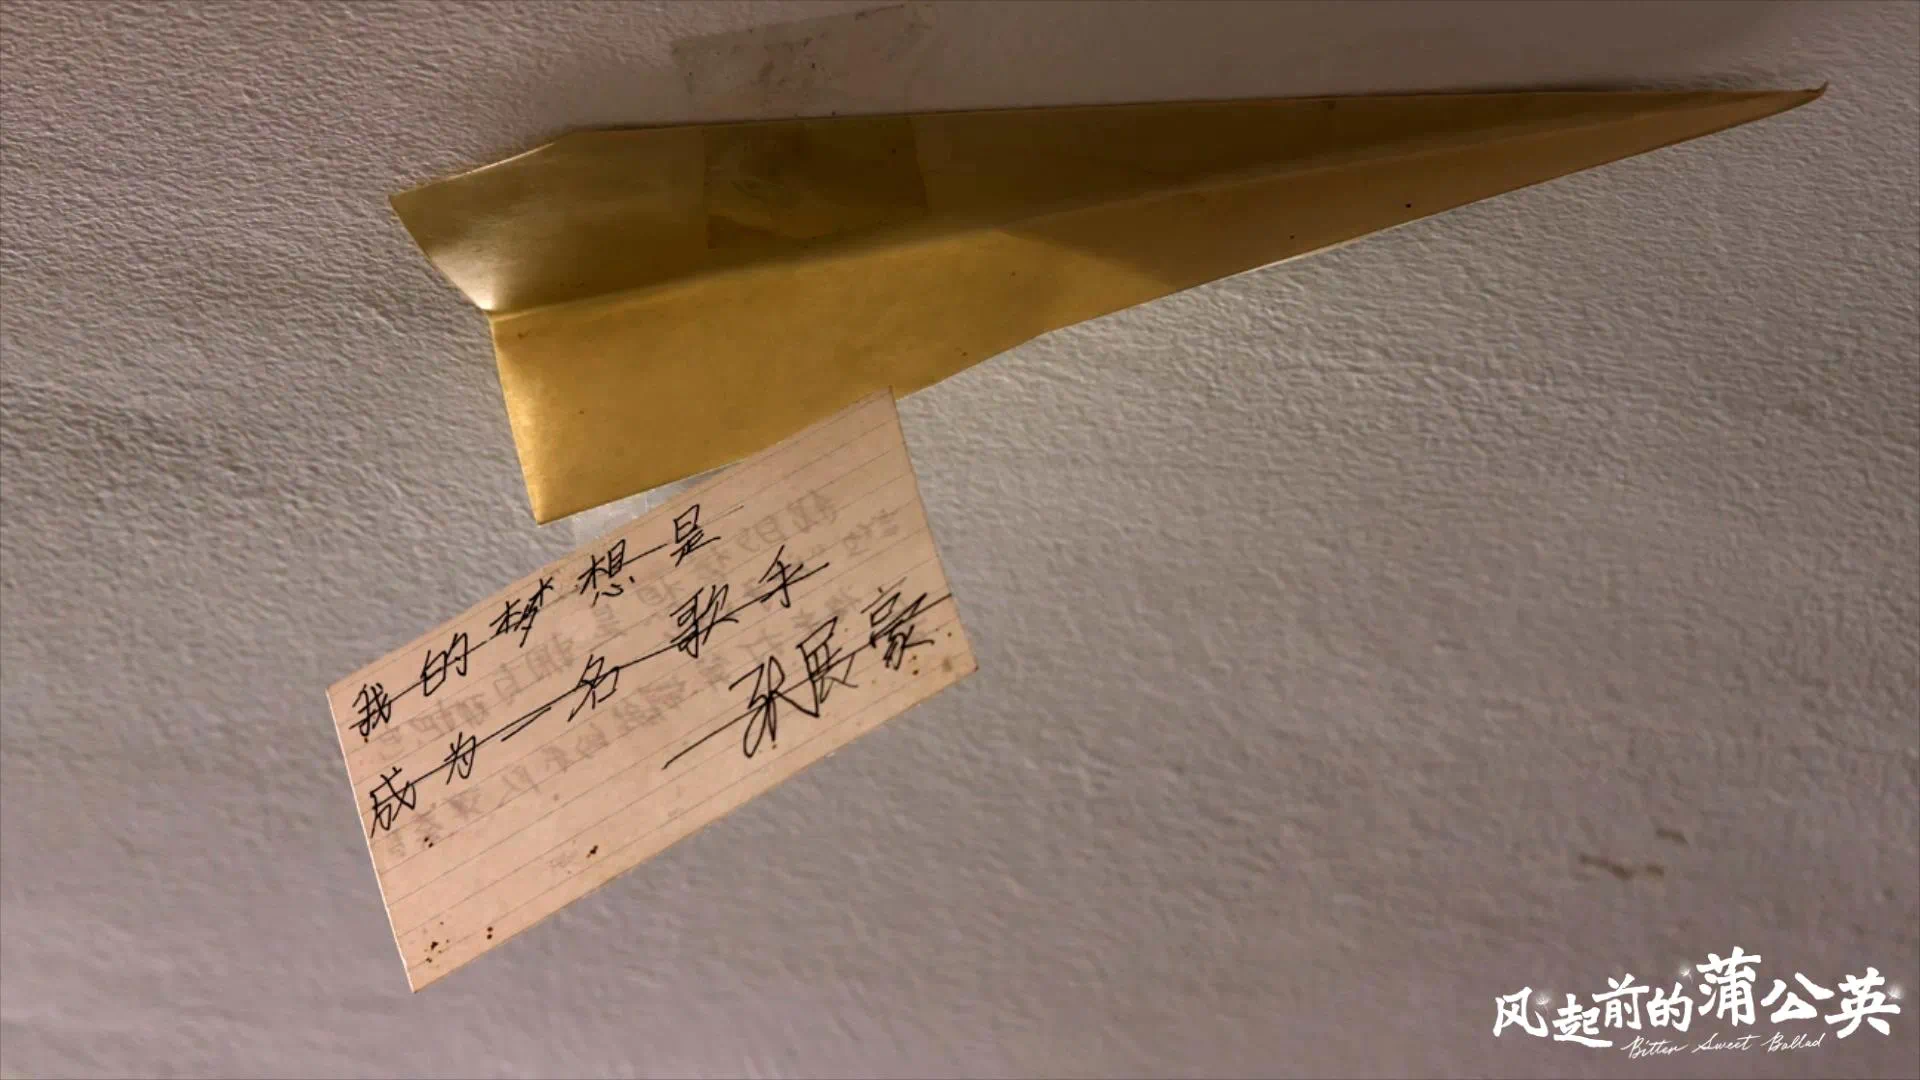 我的梦想是
成为一名歌手
——张展豪
风起前的蒲公英
Bitter Sweet Ballad